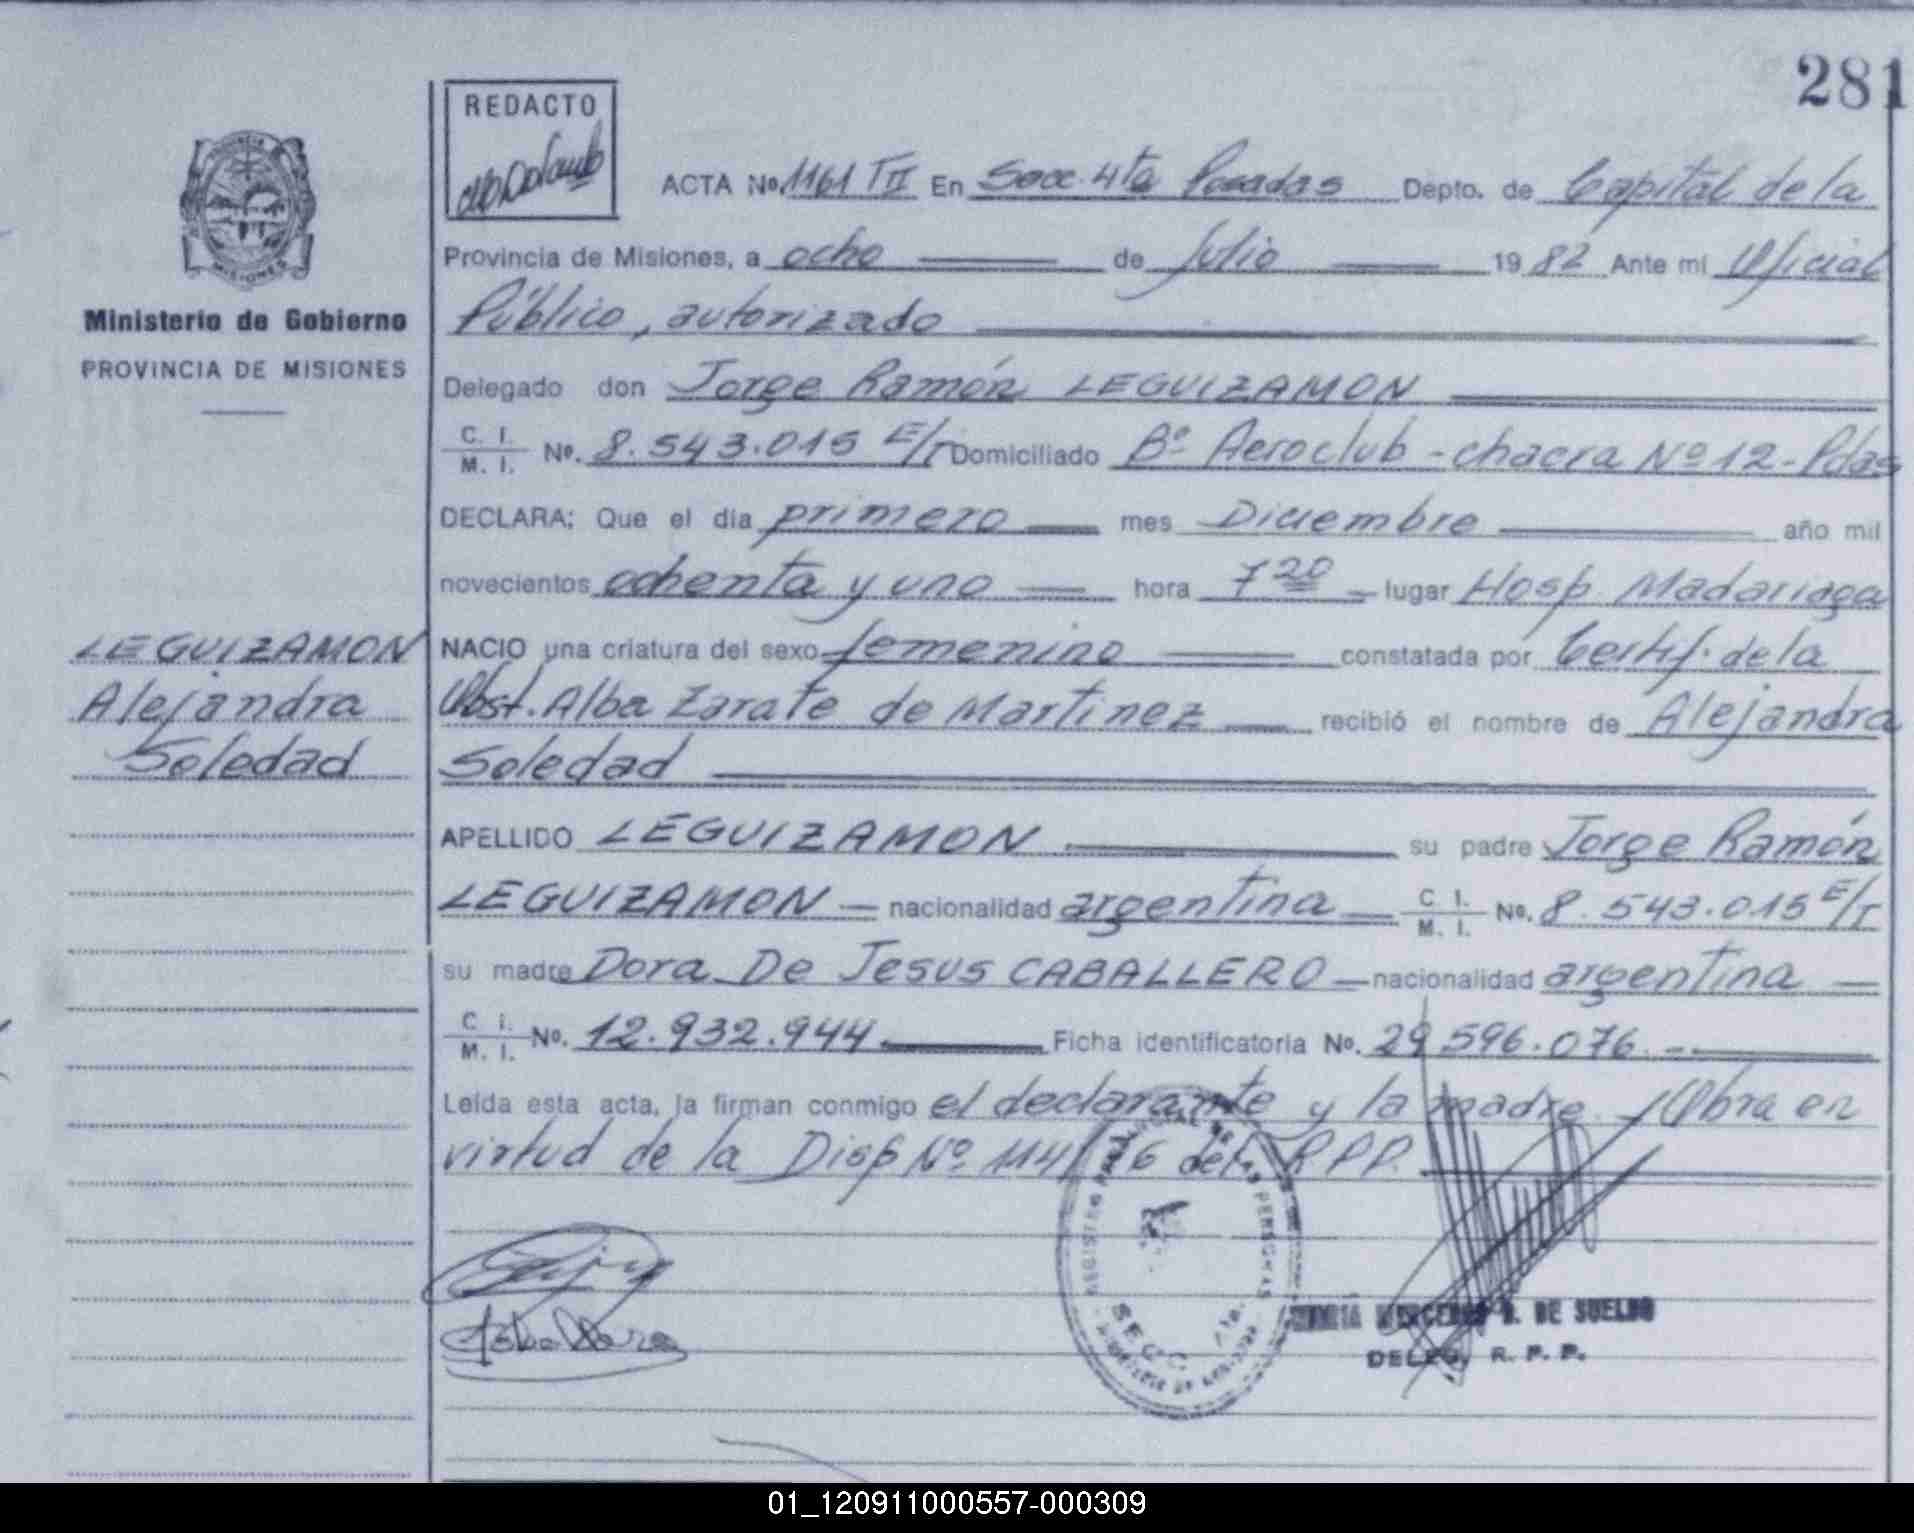 281
REDACTO
ACTA No. 1161 TII En Secc. 4ta Posadas Depto. de Capital de la
Provincia de Misiones, a ocho de Julio 1982 Ante mi Oficial
Público, autorizado
Delegado don Jorge Ramón LEGUIZAMON
C. I. / M. I. No. 8.543.015 E/T Domiciliado Bº Aeroclub - chacra Nº 12 - Pdas
DECLARA; Que el día primero mes Diciembre año mil
novecientos ochenta y uno hora 7 20 lugar Hosp. Madariaga
NACIO una criatura del sexo femenino constatada por Certif. de la
Obst. Alba Zarate de Martinez recibió el nombre de Alejandra
Soledad
APELLIDO LEGUIZAMON su padre Jorge Ramón
LEGUIZAMON nacionalidad argentina C. I. / M. I. No. 8.543.015 E/T
su madre Dora De Jesus CABALLERO nacionalidad argentina
C. I. / M. I. No. 12.932.944 Ficha identificatoria No. 29 596.076.-
Leida esta acta, la firman conmigo el declarante y la madre. Obra en
virtud de la Disp Nº 114/76 del R.P.P.
MISIONES
Ministerio de Gobierno
PROVINCIA DE MISIONES
LEGUIZAMON
Alejandra
Soledad
REGISTRO PROVINCIAL DE LAS PERSONAS
SECC.
MERCEDES DE SUELDO
DELEG. R. P. P.
01_120911000557-000309